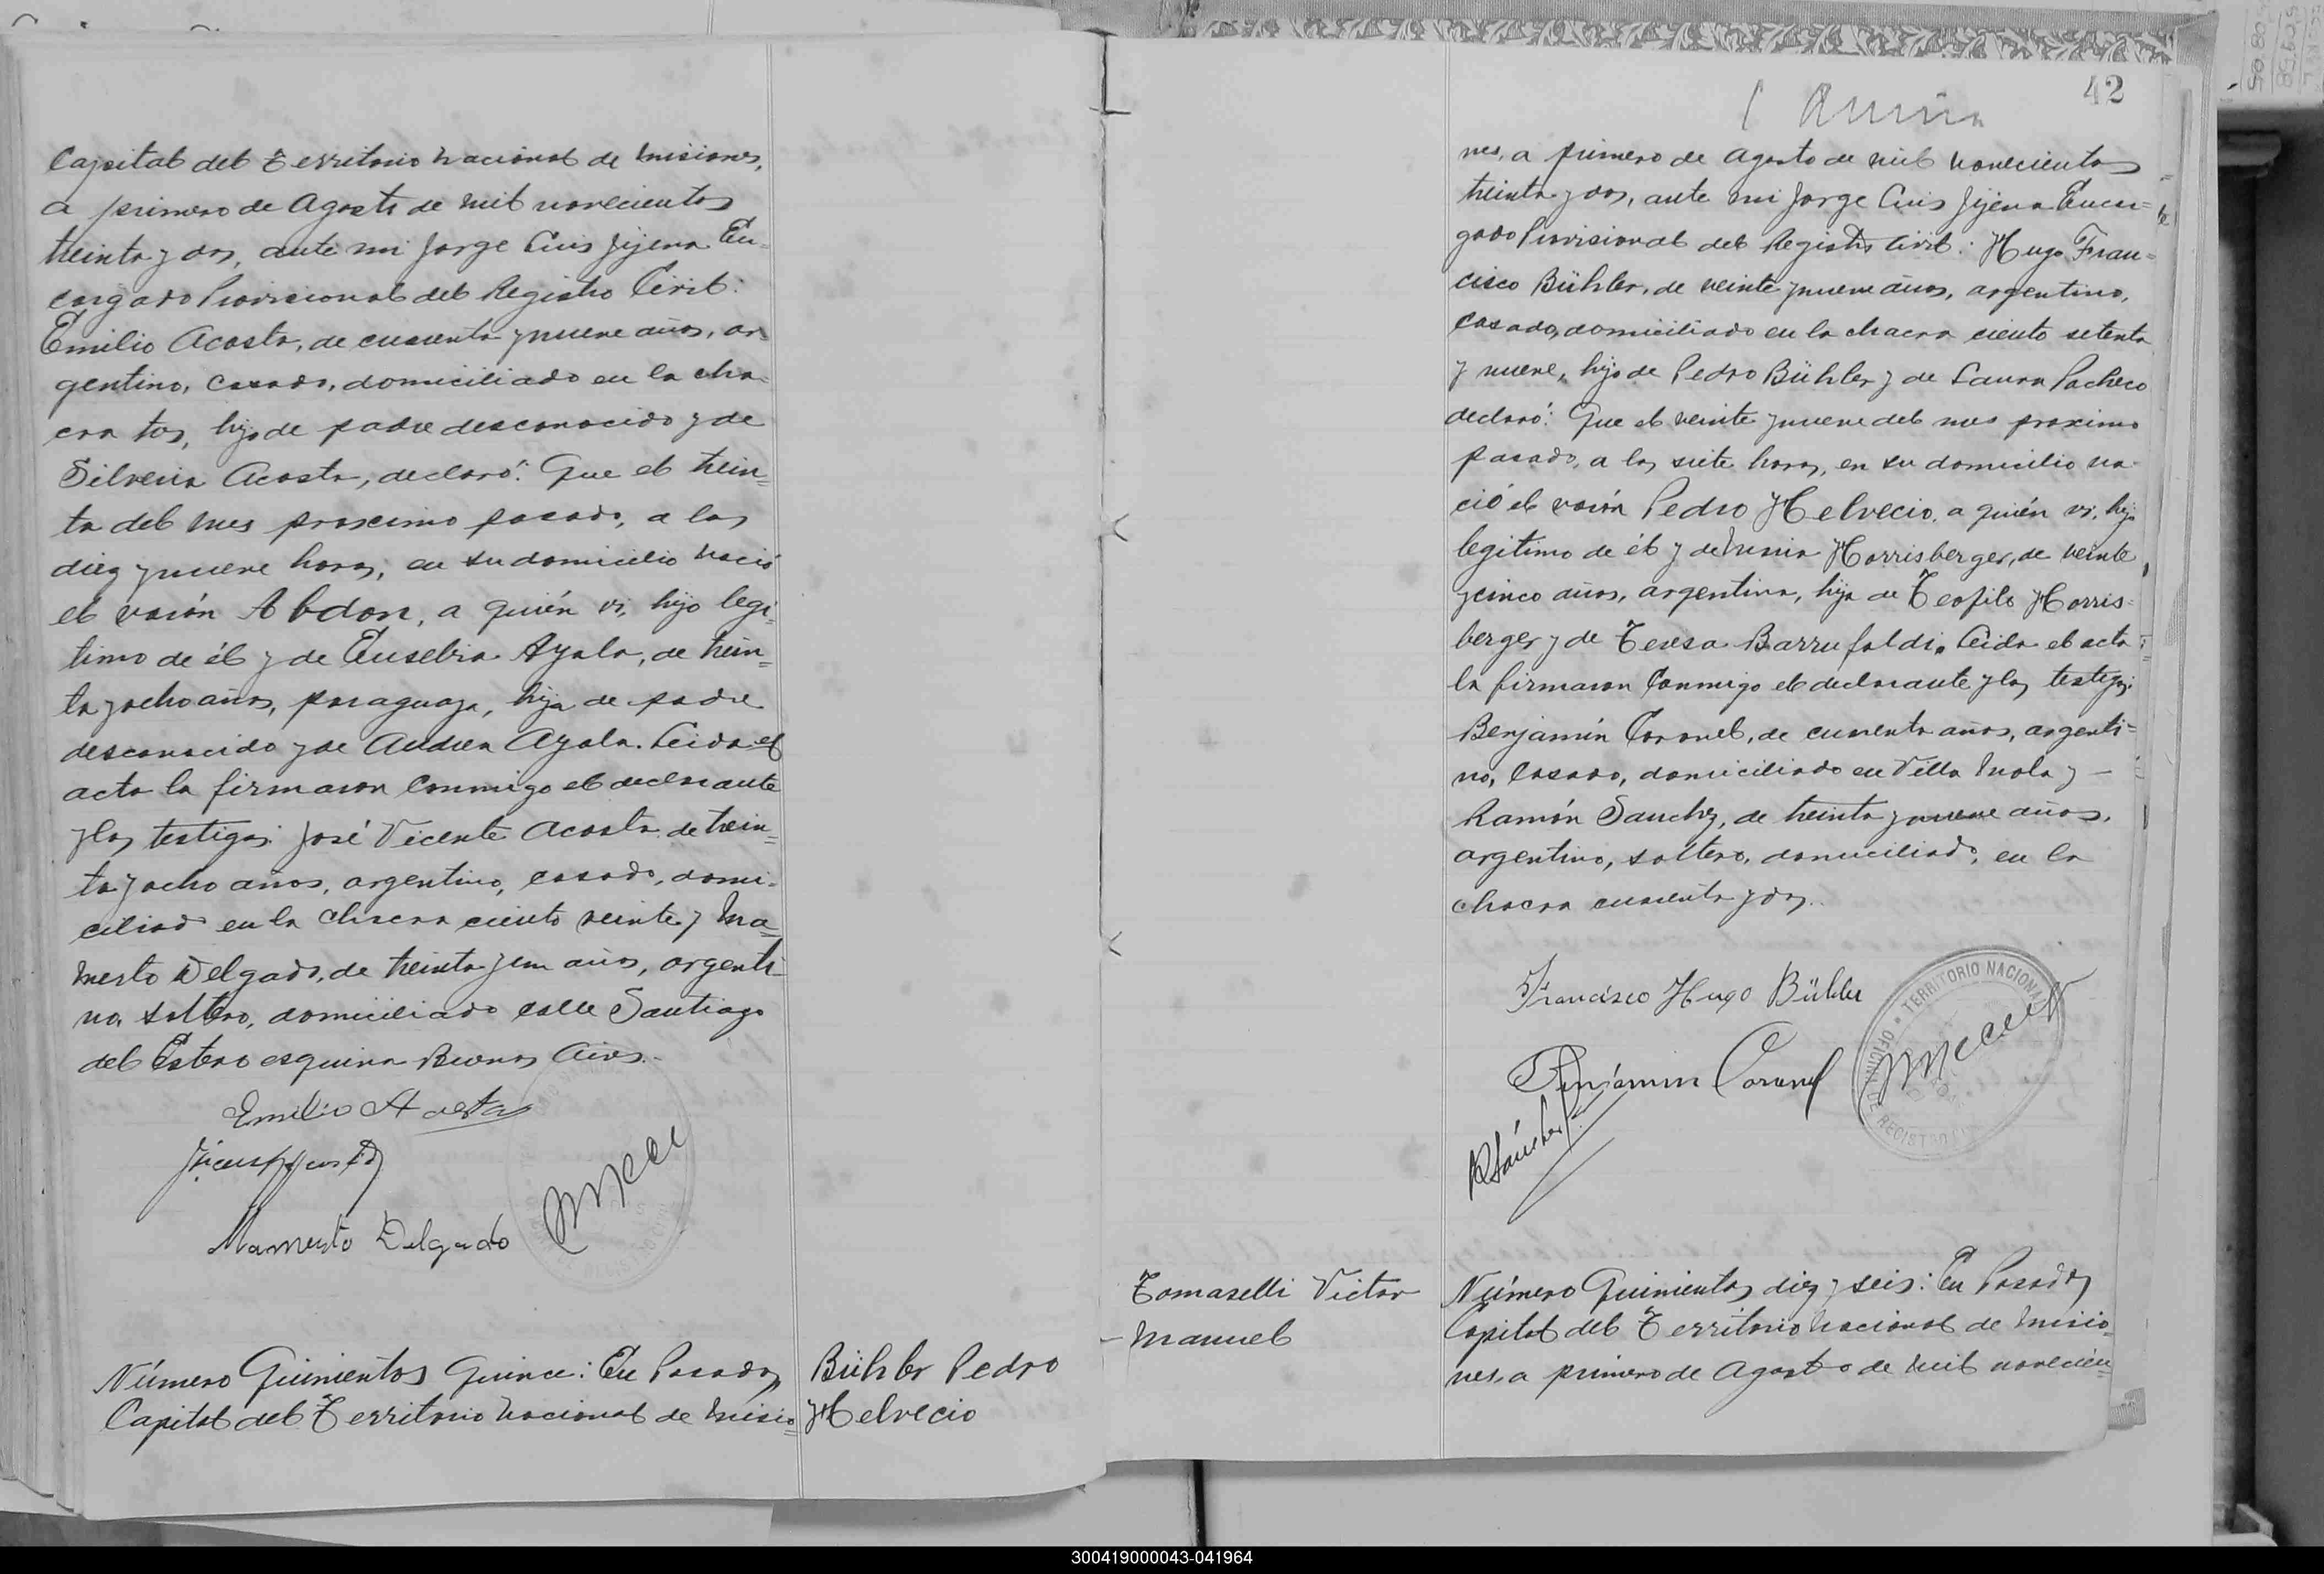 Capital del Territorio nacional de Misiones,
a primero de Agosto de mil novecientos
treinta y dos, ante mi Jorge Luis Jijena En=
cargado Provisional del Registro Civil:
Emilio Acosta, de cuarenta y nueve años, ar
gentino, casado, domiciliado en la cha=
cra tos, hijo de padre desconocido y de
Silveria Acosta, declaró: Que el trein=
ta del mes proximo pasado, a las
diez y nueve horas, en su domicilio nació
el varón Abdon, a quién vi, hijo legi=
timo de él y de Eusebia Ayala, de trein=
ta y ocho años, paraguaya, hija de padre
desconocido y de Andrea Ayala. Leida el
acta la firmaron conmigo el declarante
y los testigos: José Vicente Acosta de trein=
ta y ocho años, argentino, casado, domi=
ciliad en la chacra ciento veinte y Ma=
merto Delgado, de treinta y un años, argenti=
no, soltero, domiciliado calle Santiago
del Estero esquina Buenos Aires.-
Emilio Acosta
Mamerto Delgado
Número Quinientos quince: En Posadas
Capital del Territorio nacional de Misio=
Bühler Pedro
Helvecio
42
nes, a primero de Agosto de mil novecientos
treinta y dos, ante mi Jorge Luis Jijena Encar=
gado Provisional del Registro Civil: Hugo Fran=
cisco Bühler, de veinte y nueve años, argentino,
casado, domiciliado en la chacra ciento setenta
y nueve, hijo de Pedro Bühler y de Laura Pacheco
declaró: Que el veinte y nueve del mes proximo
pasado, a las siete horas, en su domicilio na=
ció el varón Pedro Helvecio, a quién vi, hijo
legitimo de él y de Maria Horrisberger, de veinte
y cinco años, argentina, hija de Teofilo Horris=
berger y de Teresa Barrufaldi. Leida el acta
la firmaron conmigo el declarante y los testigos:
Benjamín Coronel, de cuarenta años, argenti=
no, casado, domiciliado en Villa Mola y -
Ramón Sanchez, de treinta y nueve años,
argentino, soltero, domiciliado, en la
chacra cuarenta y dos.
Francisco Hugo Bühler
Benjamin Coronel
RSánchez
OFICINA DE REGISTRO • TERRITORIO NACIONAL
Tomaselli Victor
- Manuel
Número Quinientos diez y seis: En Posadas
Capital del Territorio nacional de Misio=
nes, a primero de Agosto de mil novecien=
300419000043-041964